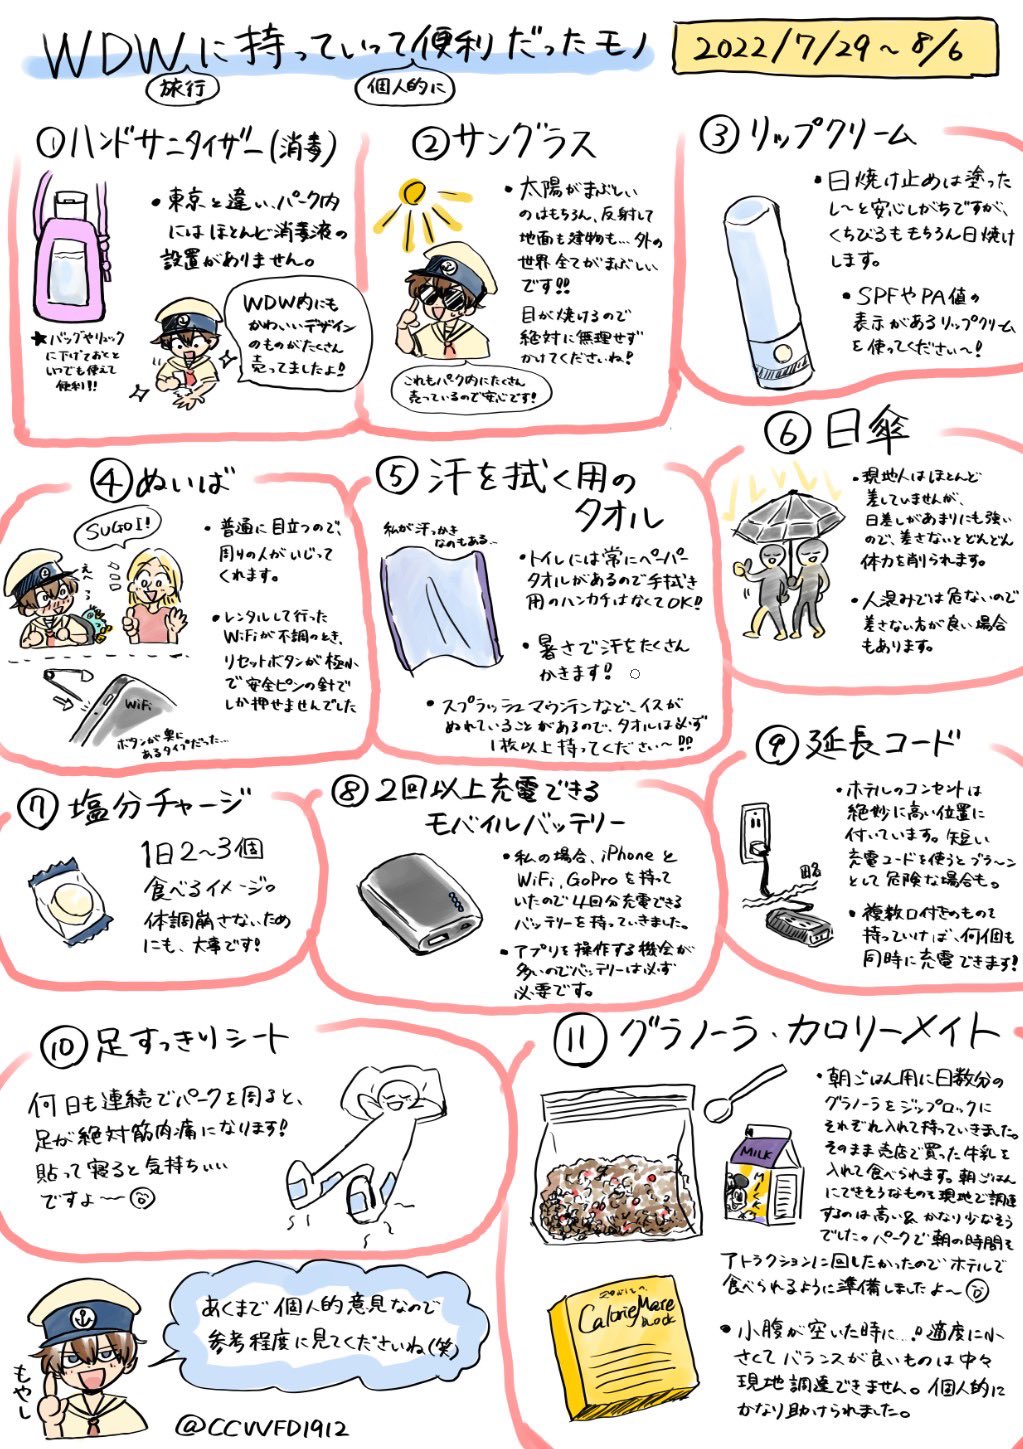 WDWに持っていって便利だったモノ
旅行
個人的に
2022/7/29～8/6
①ハンドサニタイザー(消毒)
・東京と違い、パーク内
にはほとんど消毒液の
設置がありません。
★バッグやリュック
に下げておくと
いつでも使えて
便利!!
WDW内にも
かわいいデザイン
のものがたくさん
売ってましたよ!
②サングラス
・太陽がまぶしい
のはもちろん、反射して
地面も建物も…外の
世界全てがまぶしい
です!!
目が焼けるので
絶対に無理せず
かけてくださいね!
これもパーク内にたくさん
売っているので安心です!
③リップクリーム
・日焼け止めは塗った
し～と安心しがちですが、
くちびるももちろん日焼け
します。
・SPFやPA値の
表示があるリップクリーム
を使ってください～!
④ぬいば
SUGOI!
え～
・普通に目立つので、
周りの人がいじって
くれます。
・レンタルして行った
WiFiが不調のとき、
リセットボタンが極小
で安全ピンの針で
しか押せませんでした
WiFi
ボタンが奥に
あるタイプだった…
⑤汗を拭く用の
タオル
私が汗っかき
なのもある…
・トイレには常にペーパー
タオルがあるので手拭き
用のハンカチはなくてOK!!
・暑さで汗をたくさん
かきます!
・スプラッシュマウンテンなど、イスが
ぬれていることがあるので、タオルは必ず
1枚以上持ってください～!!
⑥日傘
・現地人はほとんど
差していませんが、
日差しがあまりにも強い
ので、差さないとどんどん
体力を削られます。
・人混みでは危ないので
差さない方が良い場合
もあります。
⑦塩分チャージ
1日2～3個
食べるイメージ。
体調崩さないため
にも、大事です!
⑧2回以上充電できる
モバイルバッテリー
・私の場合、iPhoneと
WiFi、GoProを持って
いたので4回分充電できる
バッテリーを持っていきました。
・アプリを操作する機会が
多いのでバッテリーは必ず
必要です。
⑨延長コード
・ホテルのコンセントは
絶妙に高い位置に
付いています。短い
充電コードを使うとブラ～ン
として危険な場合も。
・複数口付きのものを
持っていけば、何個も
同時に充電できます!
⑩足すっきりシート
何日も連続でパークを周ると、
足が絶対筋肉痛になります!
貼って寝ると気持ちいい
ですよ～
⑪グラノーラ・カロリーメイト
・朝ごはん用に日数分の
グラノーラをジップロックに
それぞれ入れて持っていきました。
そのまま売店で買った牛乳を
入れて食べられます。朝ごはん
にできそうなものを現地で調達
するのは高い&かなり少なそう
でした。パークで朝の時間を
アトラクションに回したかったのでホテルで
食べられるように準備しましたよ～
MILK
MILK
CalorieMate
Block
・小腹が空いた時に…。適度に小
さくてバランスが良いものは中々
現地調達できません。個人的に
かなり助けられました。
あくまで個人的意見なので
参考程度に見てくださいね(笑)
もやし
@CCWFD1912